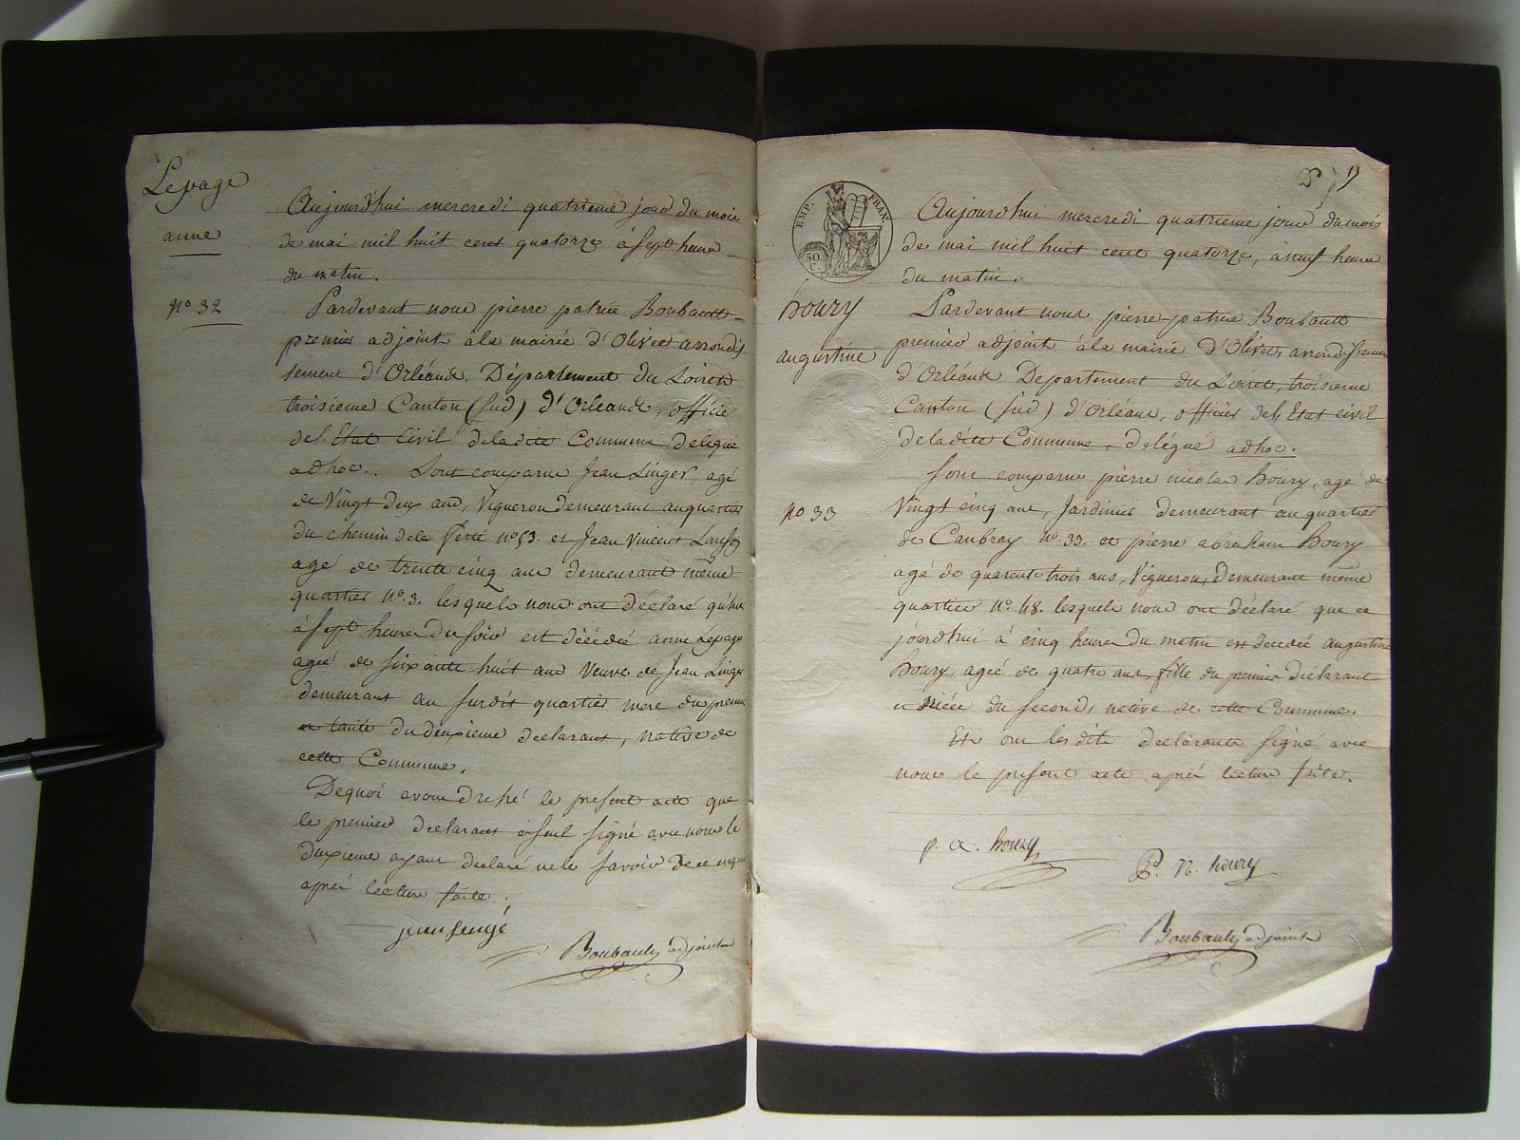 Lepage
anne
Nº 32
Aujourd'hui mercredi quatrieme jour du mois
de mai mil huit cent quatorze à sept heures
du matin.
Pardevant nous pierre patrice Boubault
premier adjoint à la mairie d'Olivet arrondis
sement d'Orléans, Département du Loiret
troisieme Canton (sud) d'Orleans, officier
de l'Etat Civil de la dite Commune délégué
adhoc. Sont comparus Jean Linger, agé
de Vingt deux ans, Vigneron demeurant au quartier
du chemin de la ferté nº 53. et Jean Vincent
agé de trente cinq ans demeurant même
quartier nº. 3. lesquels nous ont déclaré qu'hier
à sept heures du soir est décédée anne Lepage
agée de soixante huit ans Veuve de Jean Linger
demeurant au surdit quartier mère du premier
et tante du deuxieme declarant, native de
cette Commune.
Dequoi avons dressé le present acte que
le premier declarant a seul signé avec nous le
deuxieme ayant declaré ne le savoir de ce
après lecture faite.
jean lengé
Boubault adjoint
EMP. FRAN.
50 C
houry
augustine
nº 33
Aujourd'hui mercredi quatrieme jour du mois
de mai mil huit cent quatorze, à neuf heures
du matin.
Pardevant nous pierre patrice Boubault
premier adjoint à la mairie d'Olivet arrondissement
d'Orléans Departement du Loiret, troisieme
Canton (sud) d'Orléans, officier de l'Etat civil
de la dite Commune, délégué adhoc.
Sont comparus pierre nicolas houry, agé de
Vingt cinq ans, Jardinier demeurant au quartier
de Caubray nº. 33. et pierre abraham houry
agé de quarente trois ans, Vigneron, demeurant même
quartier nº. 48. lesquels nous ont déclaré que ce
jourd'hui à cinq heures du matin est decedée augustine
houry, agée de quatre ans, fille du premier déclarant
et niéce du second, native de cette Commune.
Et ont les dits declarants signé avec
nous le present acte après lecture faite.
p. a. houry
P. N. houry
Boubault adjoint